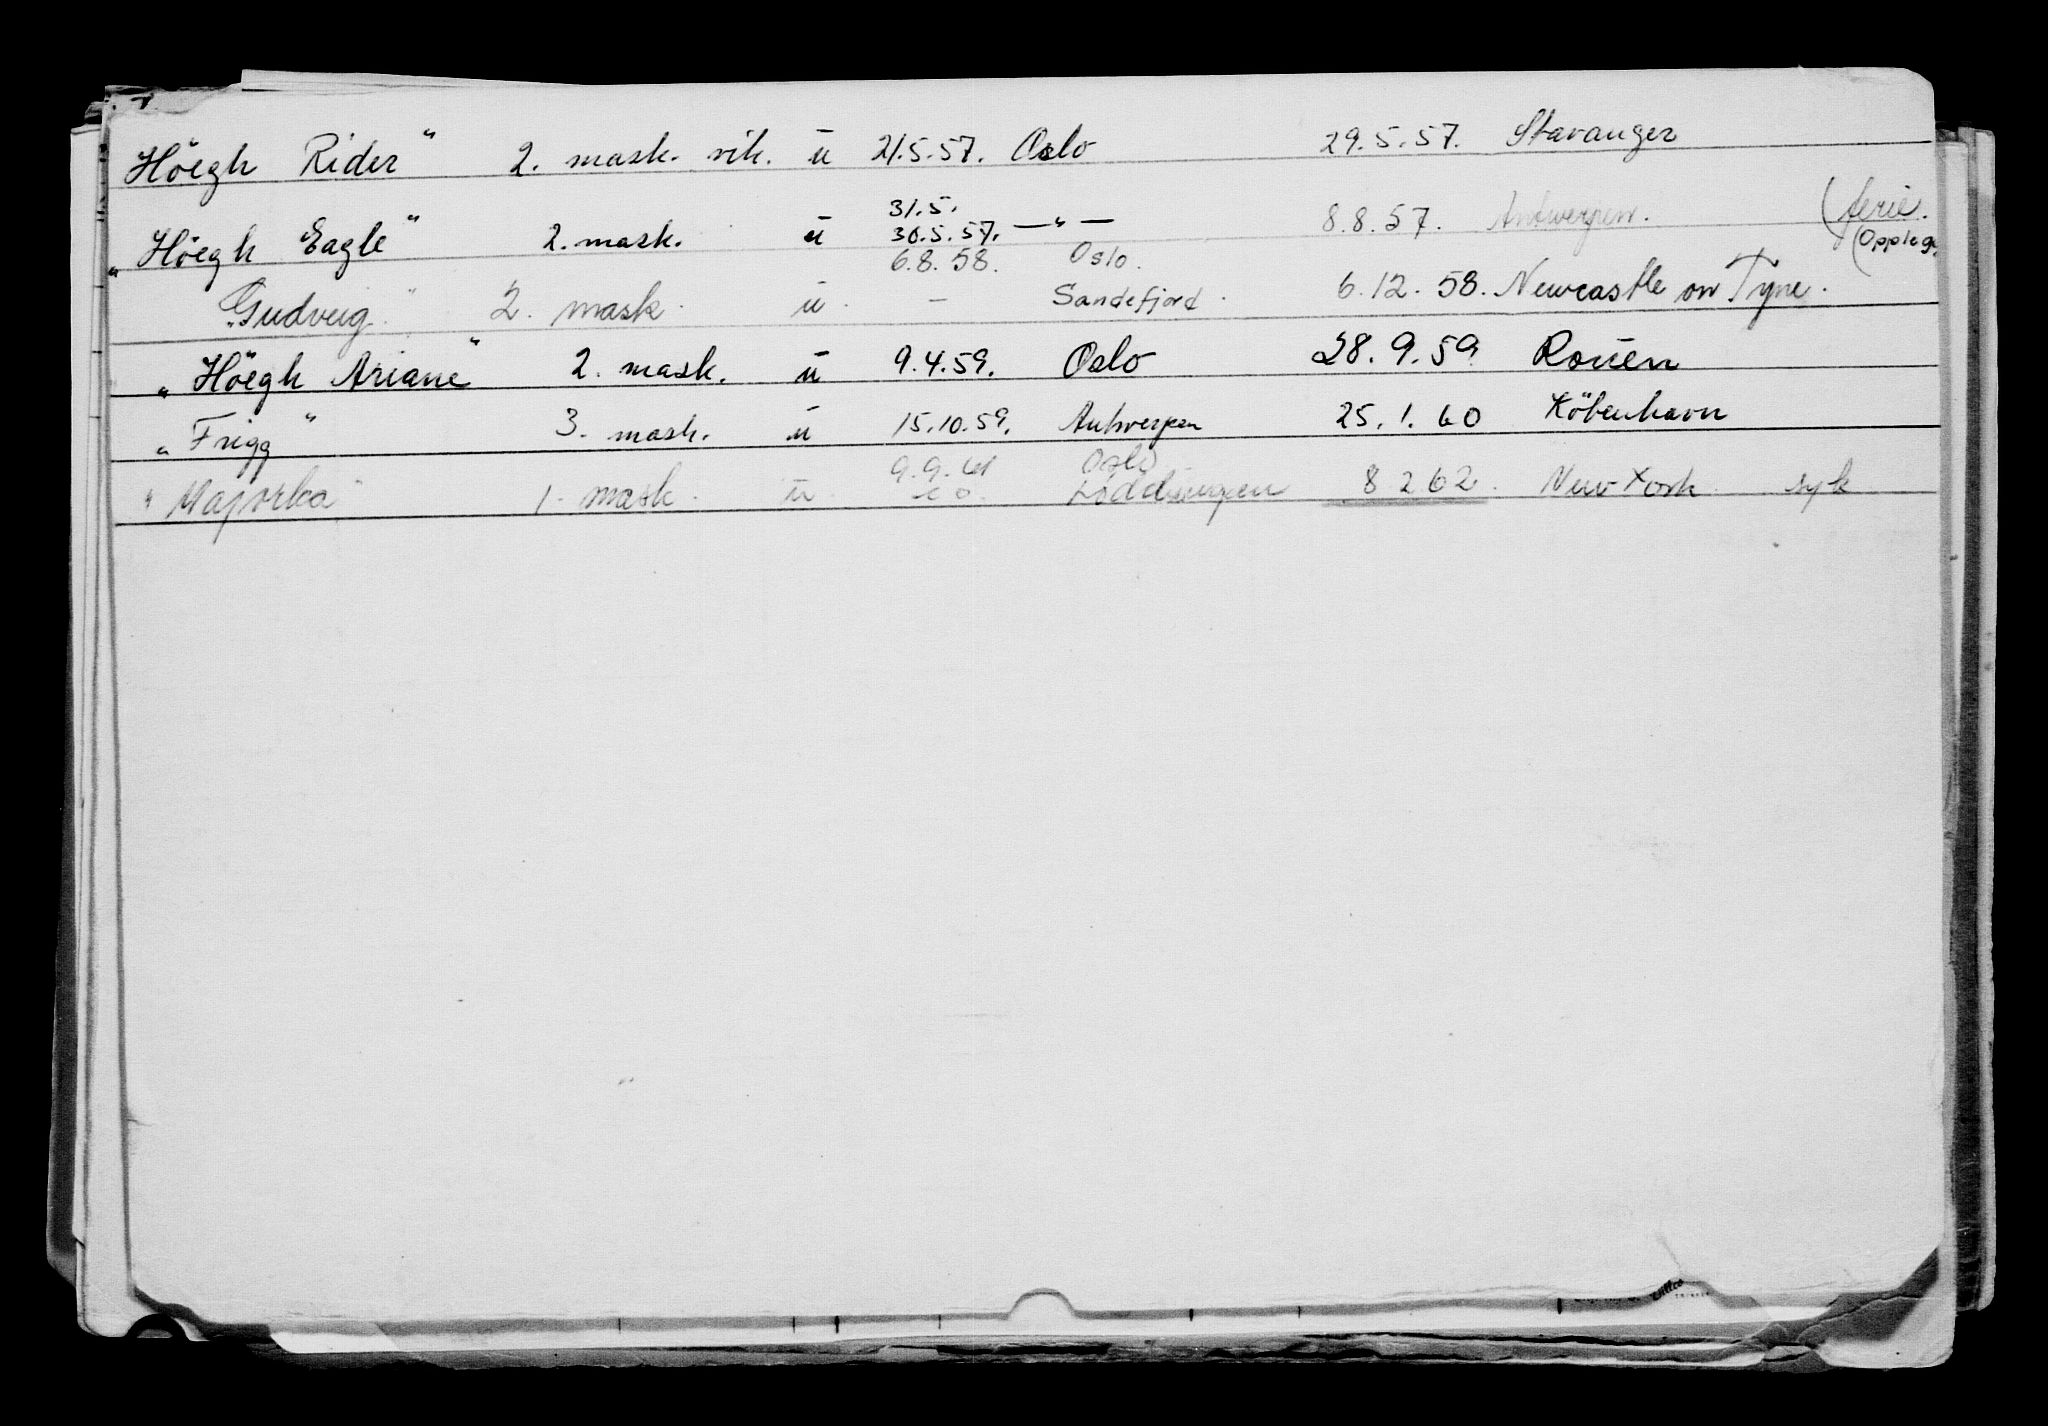 Höegh Rider" 2. mask. vik. u 21.5.57. Oslo 29.5.57. Stavanger
31.5.
"Höegh Eagle" 2. mask. u 30.5.57. —"— 8.8.57. Antwerpen. (ferie.
(Oppleg.
6.8.58. Oslo.
"Gudveig" 2. mask. u. - Sandefjord. 6.12.58. Newcastle on Tyne.
"Höegh Ariane" 2. mask. u 9.4.59. Oslo 28.9.59 Rouen
"Frigg" 3. mask. u 15.10.59. Antwerpen 25.1.60 Köbenhavn
9.9.61 Oslo
"Majorka" 1. mask. u. Lödingen 8 2 62. New York syk